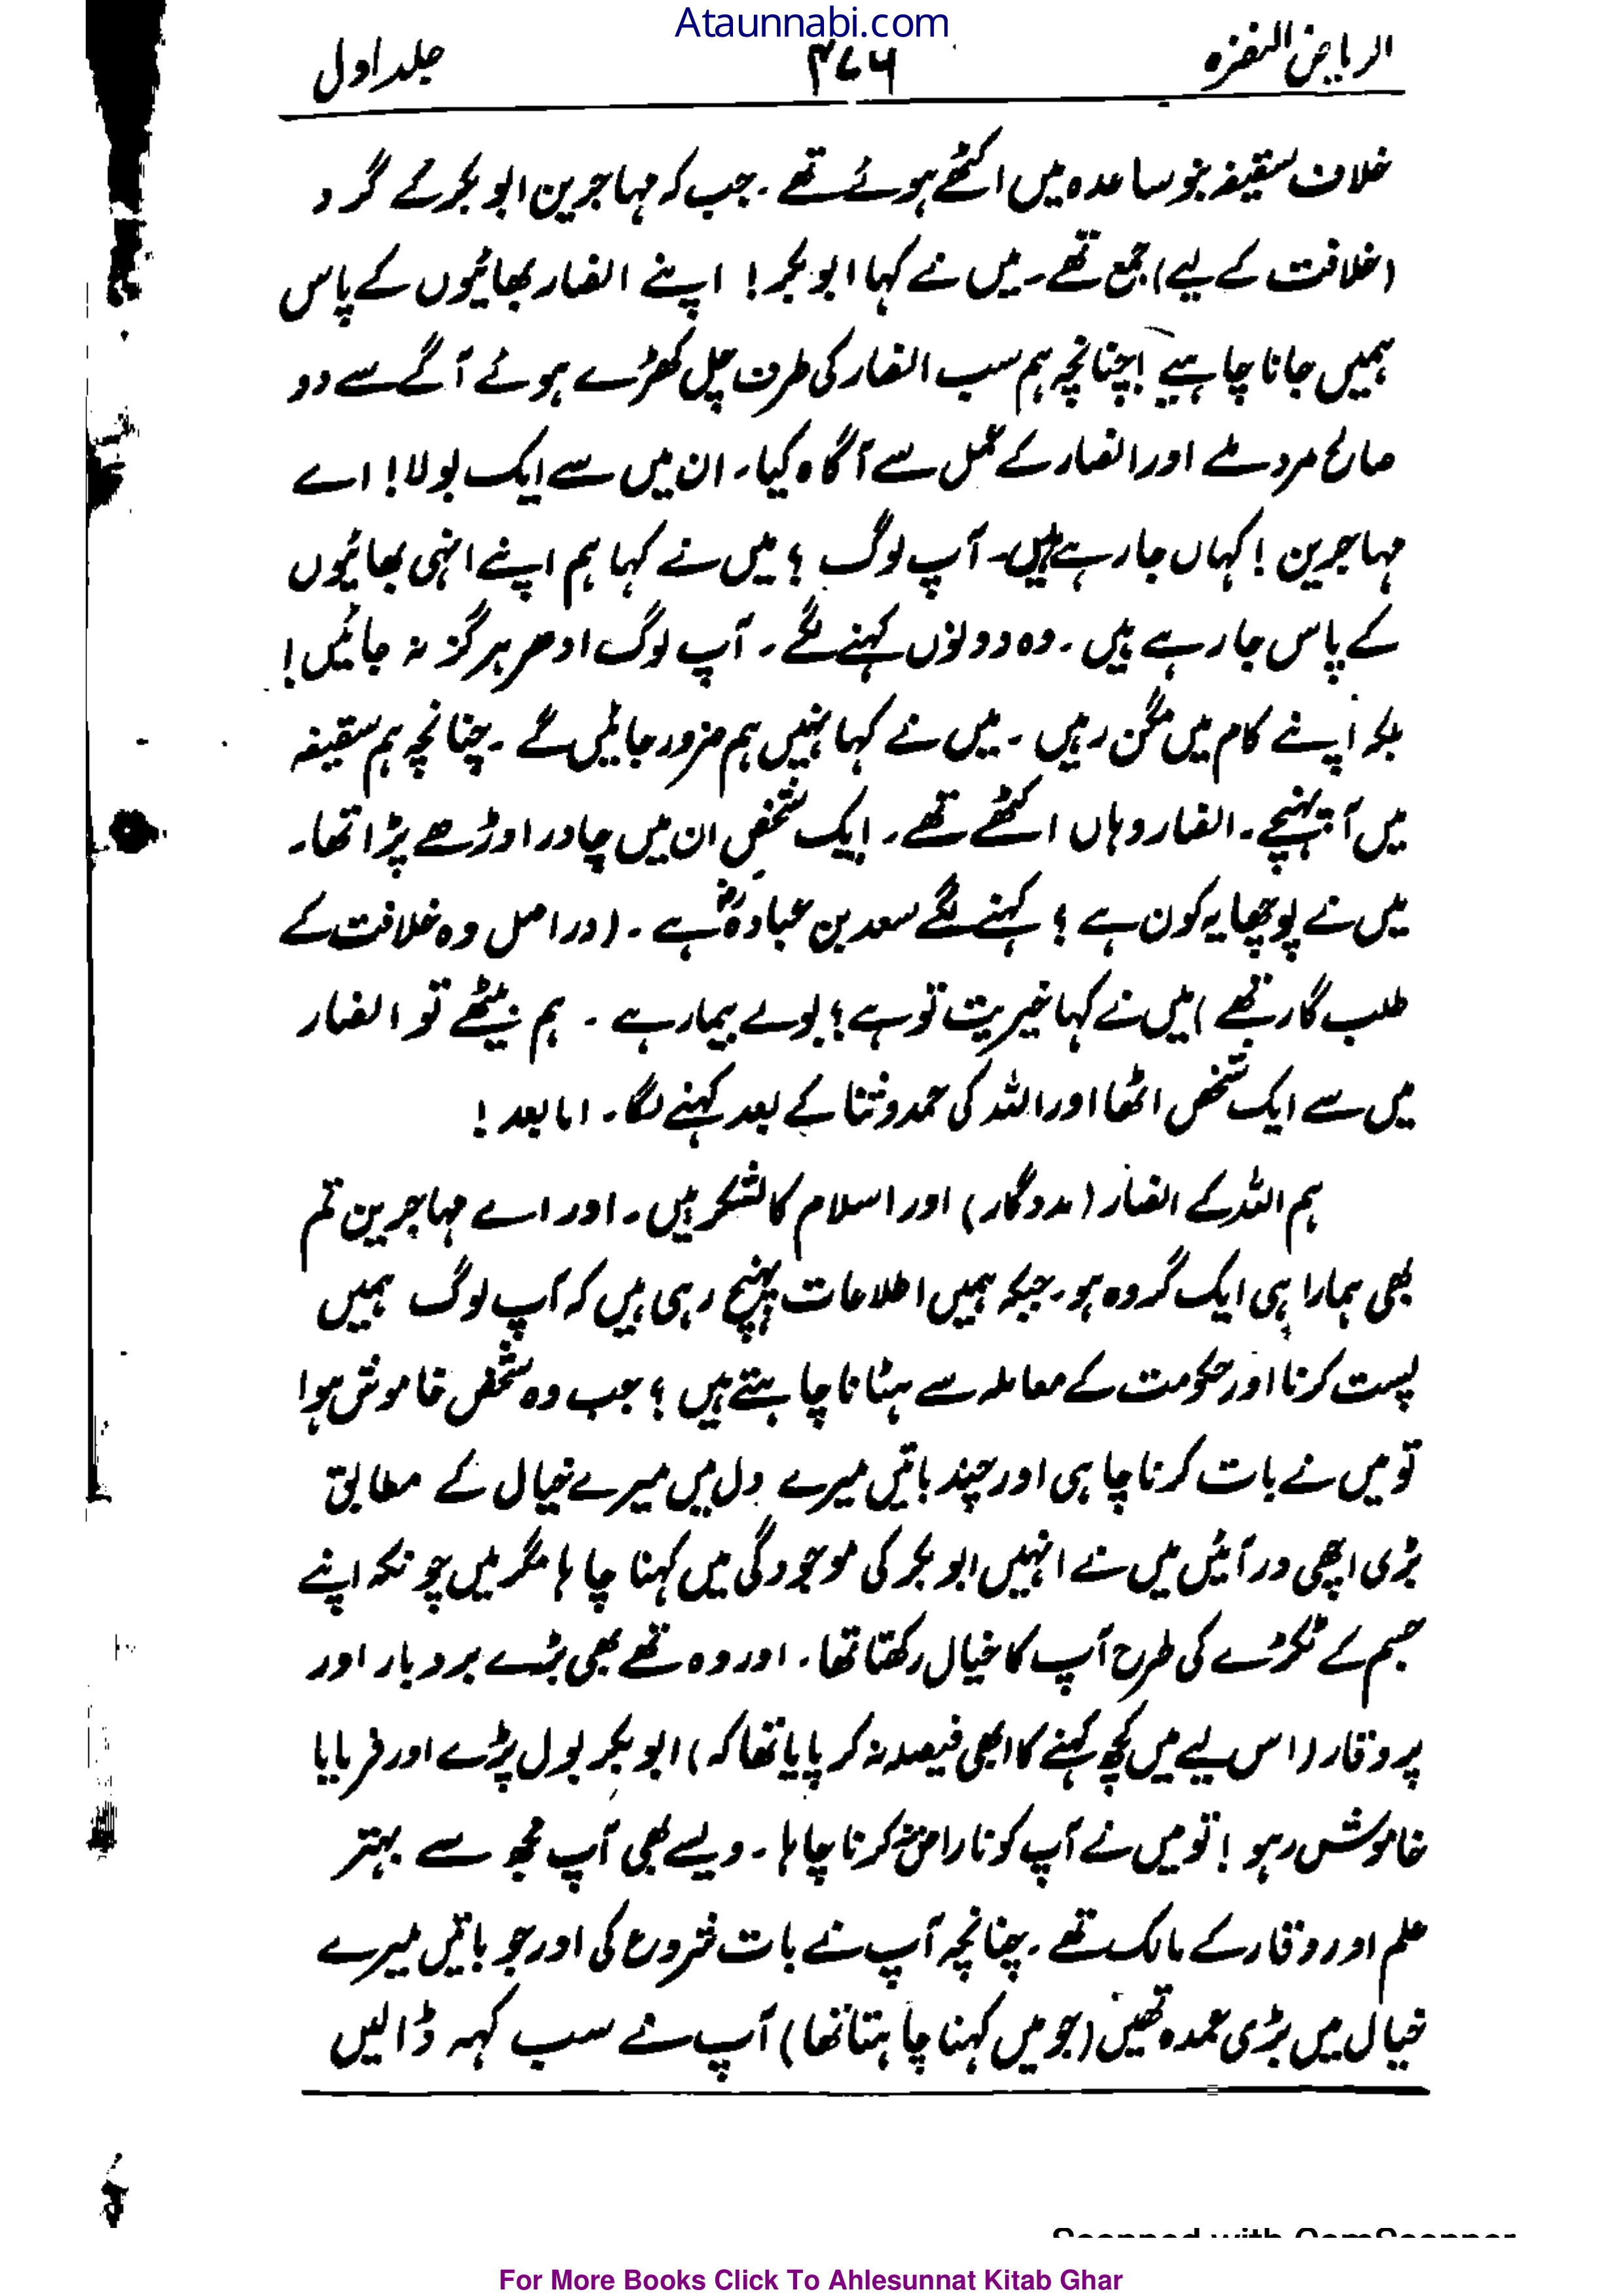 Ataunnabi.com
الریاض النضرہ ۳۷۶ جلد اول
خلاف سقیفہ بنو ساعدہ میں اکٹھے ہوئے تھے ۔ جب کہ مہاجرین ابوبکر کے گرد
(خلافت کے لیے) جمع تھے ۔ میں نے کہا ابوبکر! اپنے انصار بھائیوں کے پاس
ہمیں جانا چاہیے! چنانچہ ہم سب انصار کی طرف چل کھڑے ہوئے آگے سے دو
صالح مرد ملے اور انصار کے عمل سے آگاہ کیا ۔ ان میں سے ایک بولا! اے
مہاجرین! کہاں جارہے ہیں ۔ آپ لوگ؟ میں نے کہا ہم اپنے انہی بھائیوں
کے پاس جارہے ہیں ۔ وہ دونوں کہنے لگے ۔ آپ لوگ ادھر ہرگز نہ جائیں!
بلکہ اپنے کام میں مگن رہیں ۔ میں نے کہا نہیں ہم ضرور جائیں گے ۔ چنانچہ ہم سقیفہ
میں آپہنچے ۔ انصار وہاں اکٹھے تھے ۔ ایک شخص ان میں چادر اوڑھے پڑا تھا ۔
میں نے پوچھا یہ کون ہے؟ کہنے لگے سعد بن عبادہؓ ہے ۔ (دراصل وہ خلافت کے
طلب گار تھے) میں نے کہا خیریت تو ہے؟ بولے بیمار ہے ۔ ہم بیٹھے تو انصار
میں سے ایک شخص اٹھا اور اللہ کی حمد و ثنا کے بعد کہنے لگا ۔ امابعد!
ہم اللہ کے انصار (مددگار) اور اسلام کا لشکر ہیں ۔ اور اے مہاجرین تم
بھی ہمارا ہی ایک گروہ ہو ۔ جبکہ ہمیں اطلاعات پہنچ رہی ہیں کہ آپ لوگ ہمیں
پست کرنا اور حکومت کے معاملہ سے ہٹانا چاہتے ہیں؟ جب وہ شخص خاموش ہوا
تو میں نے بات کرنا چاہی اور چند باتیں میرے دل میں میرے خیال کے مطابق
بڑی اچھی در آئیں میں نے انہیں ابوبکر کی موجودگی میں کہنا چاہا مگر میں چونکہ اپنے
جسم کے ٹکڑے کی طرح آپ کا خیال رکھتا تھا ۔ اور وہ تھے بھی بڑے بردبار اور
پروقار (اس لیے میں کچھ کہنے کا ابھی فیصلہ نہ کر پایا تھا کہ) ابوبکر بول پڑے اور فرمایا
خاموش رہو! تو میں نے آپ کو ناراض نہ کرنا چاہا ۔ ویسے بھی آپ مجھ سے بہتر
علم اور وقار کے مالک تھے ۔ چنانچہ آپ نے بات شروع کی اور جو باتیں میرے
خیال میں بڑی عمدہ تھیں (جو میں کہنا چاہتا تھا) آپ نے سب کہہ ڈالیں
Scanned with CamScanner
For More Books Click To Ahlesunnat Kitab Ghar